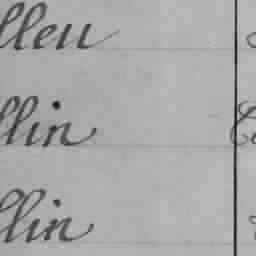 lleu
llin
llin